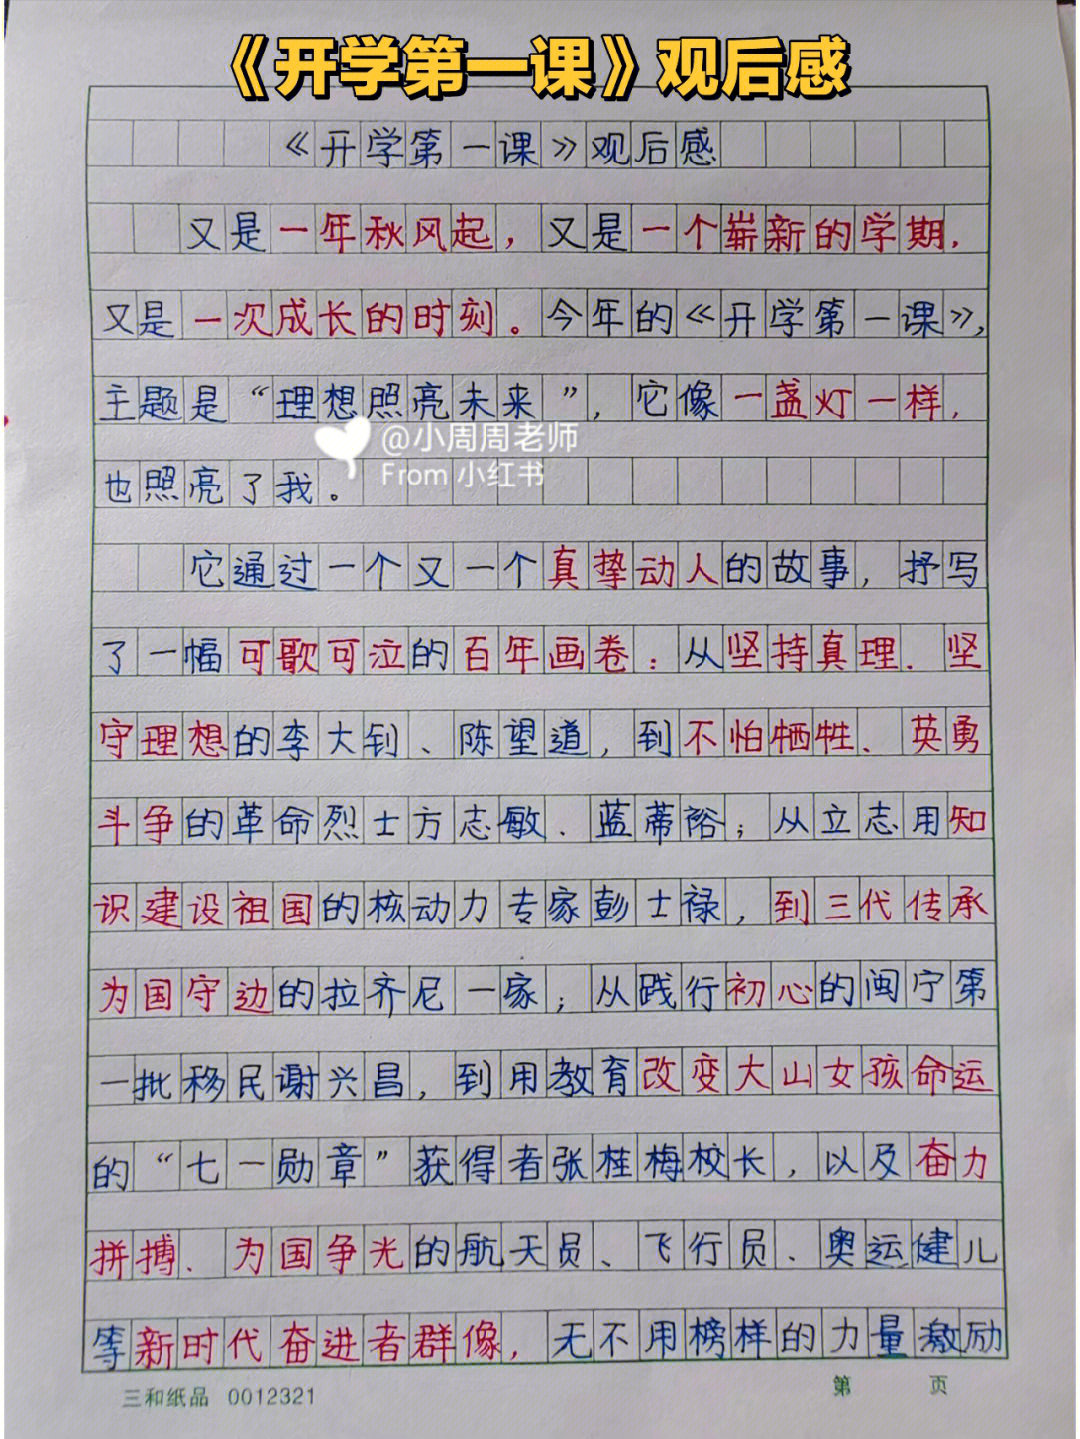 《开学第一课》观后感
《开学第一课》观后感
又是一年秋风起，又是一个崭新的学期，
又是一次成长的时刻。今年的《开学第一课》，
主题是“理想照亮未来”，它像一盏灯一样，
@小周周老师
From 小红书
也照亮了我。
它通过一个又一个真挚动人的故事，抒写
了一幅可歌可泣的百年画卷：从坚持真理、坚
守理想的李大钊、陈望道，到不怕牺牲、英勇
斗争的革命烈士方志敏、蓝蒂裕；从立志用知
识建设祖国的核动力专家彭士禄，到三代传承
为国守边的拉齐尼一家；从践行初心的闽宁第
一批移民谢兴昌，到用教育改变大山女孩命运
的“七一勋章”获得者张桂梅校长，以及奋力
拼搏、为国争光的航天员、飞行员、奥运健儿
等新时代奋进者群像，无不用榜样的力量激励
三和纸品 0012321
第 页